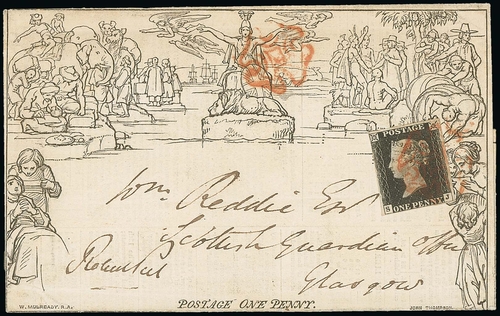 POSTAGE
ONE PENNY
S
J
Wm. Reddie Esq
Scottish Guardian Office
Glasgow
W. MULREADY. R.A.
POSTAGE ONE PENNY.
JOHN THOMPSON.